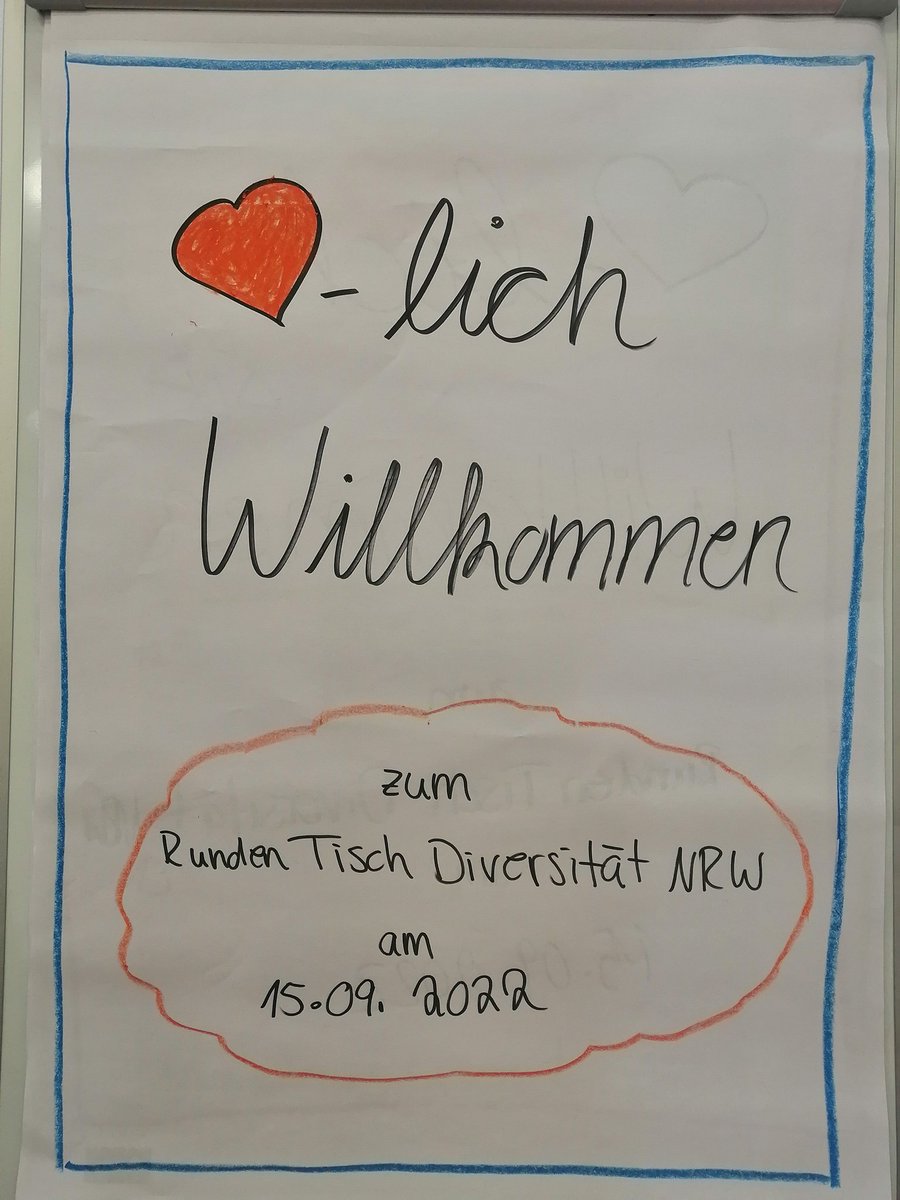 -lich
Willkommen
zum
Runden Tisch Diversität NRW
am
15.09.2022